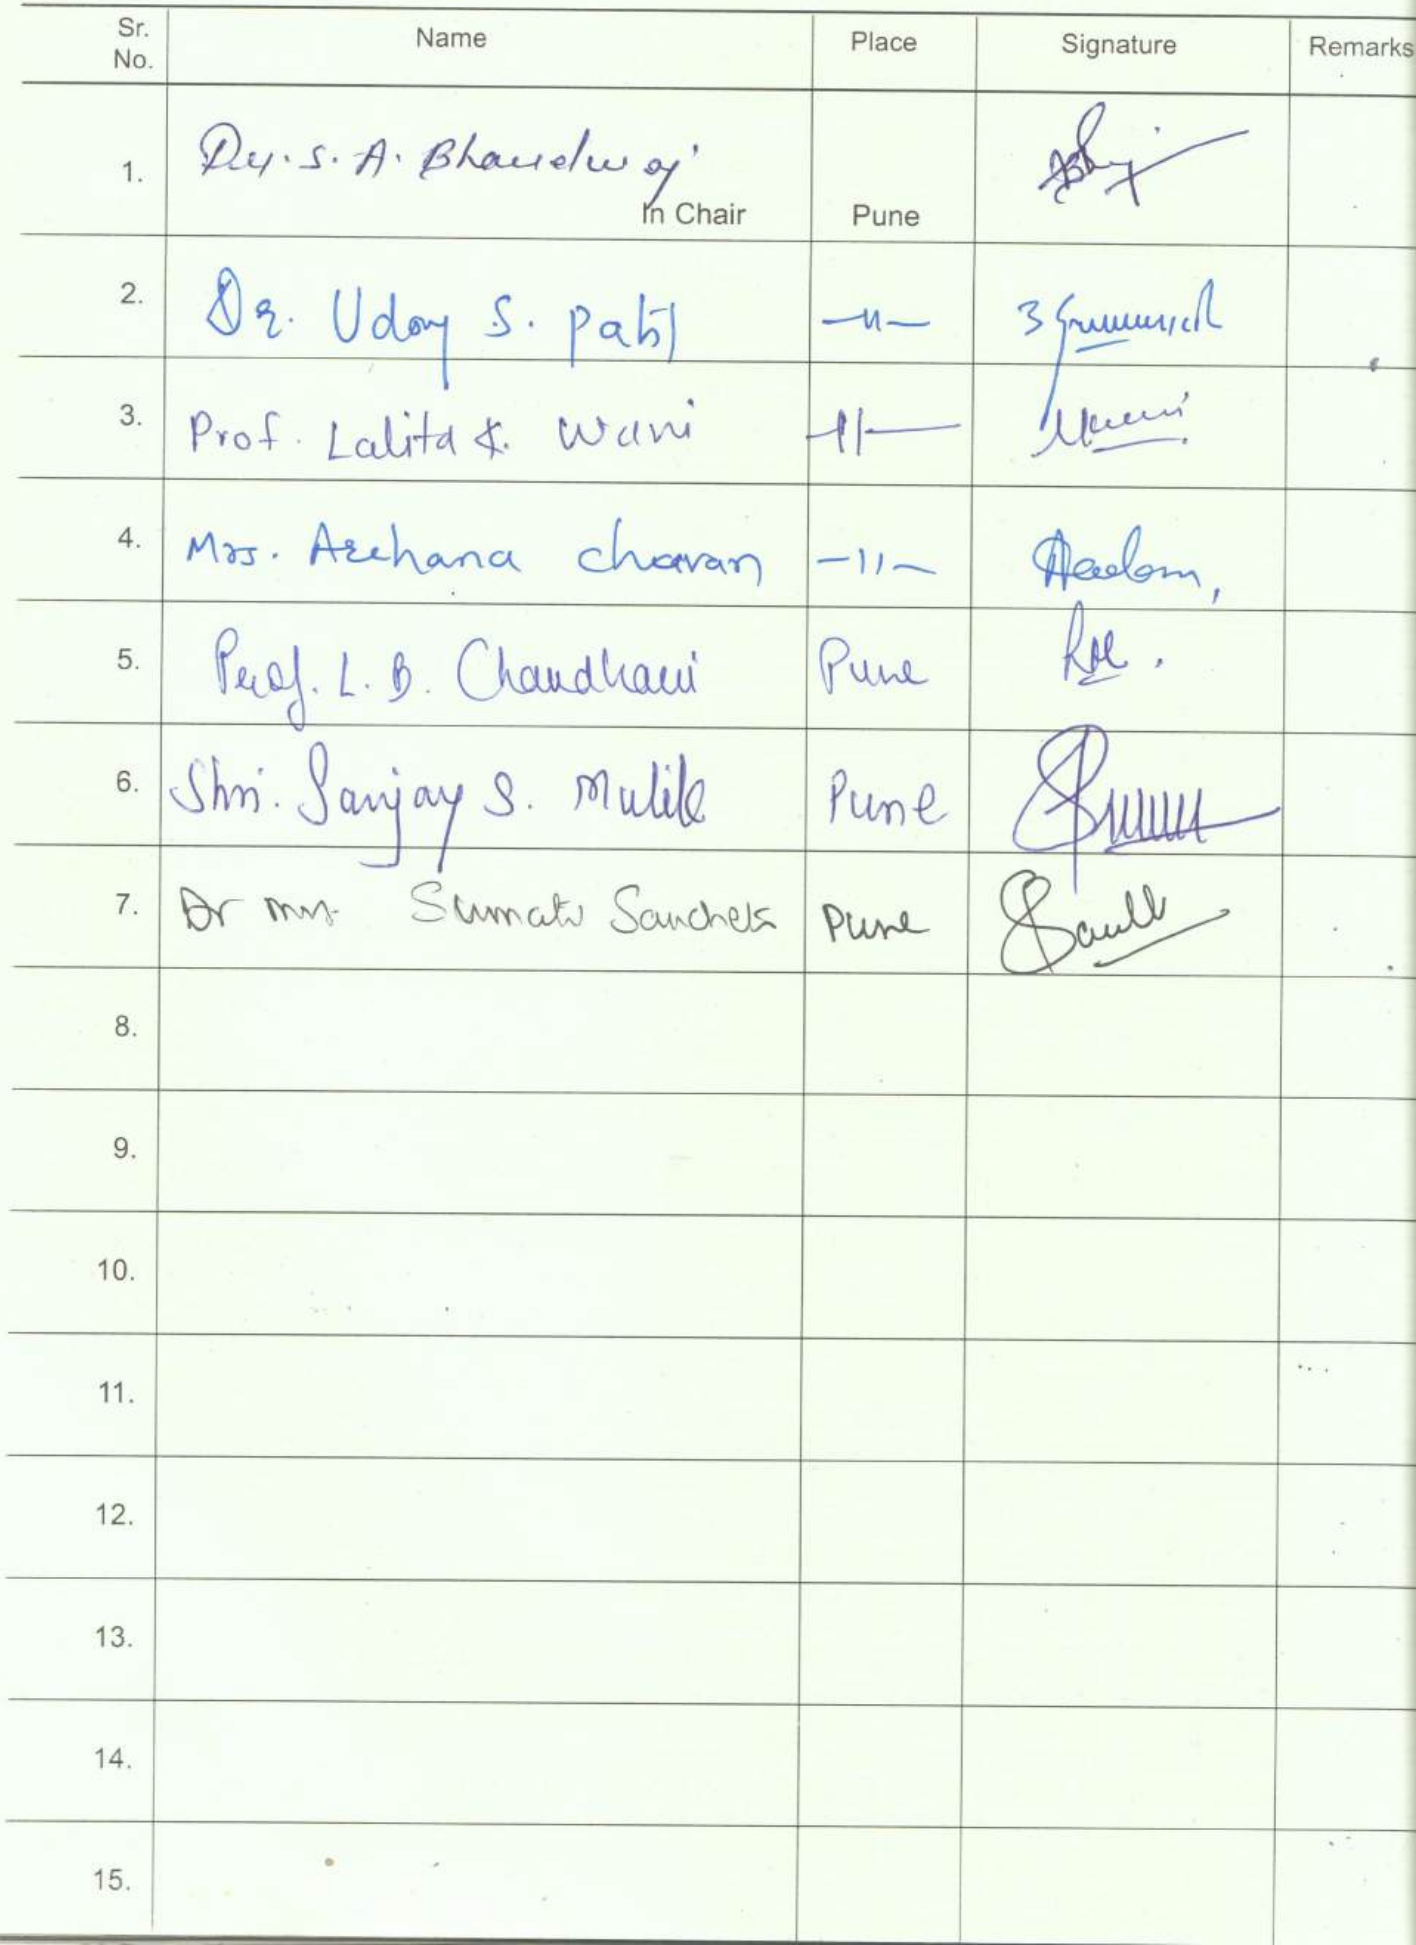 Sr. No. Name Place Signature Remarks
1. Dr. S. A. Bhardwaj
In Chair Pune
2. Dr. Uday S. Patil —11—
3. Prof. Lalita K. Wani —11—
4. Mrs. Archana chavan —11—
5. Prof. L. B. Chaudhari Pune
6. Shri. Sanjay S. Mulik Pune
7. Dr mrs. Sumati Pune
8.
9.
10.
11.
12.
13.
14.
15.